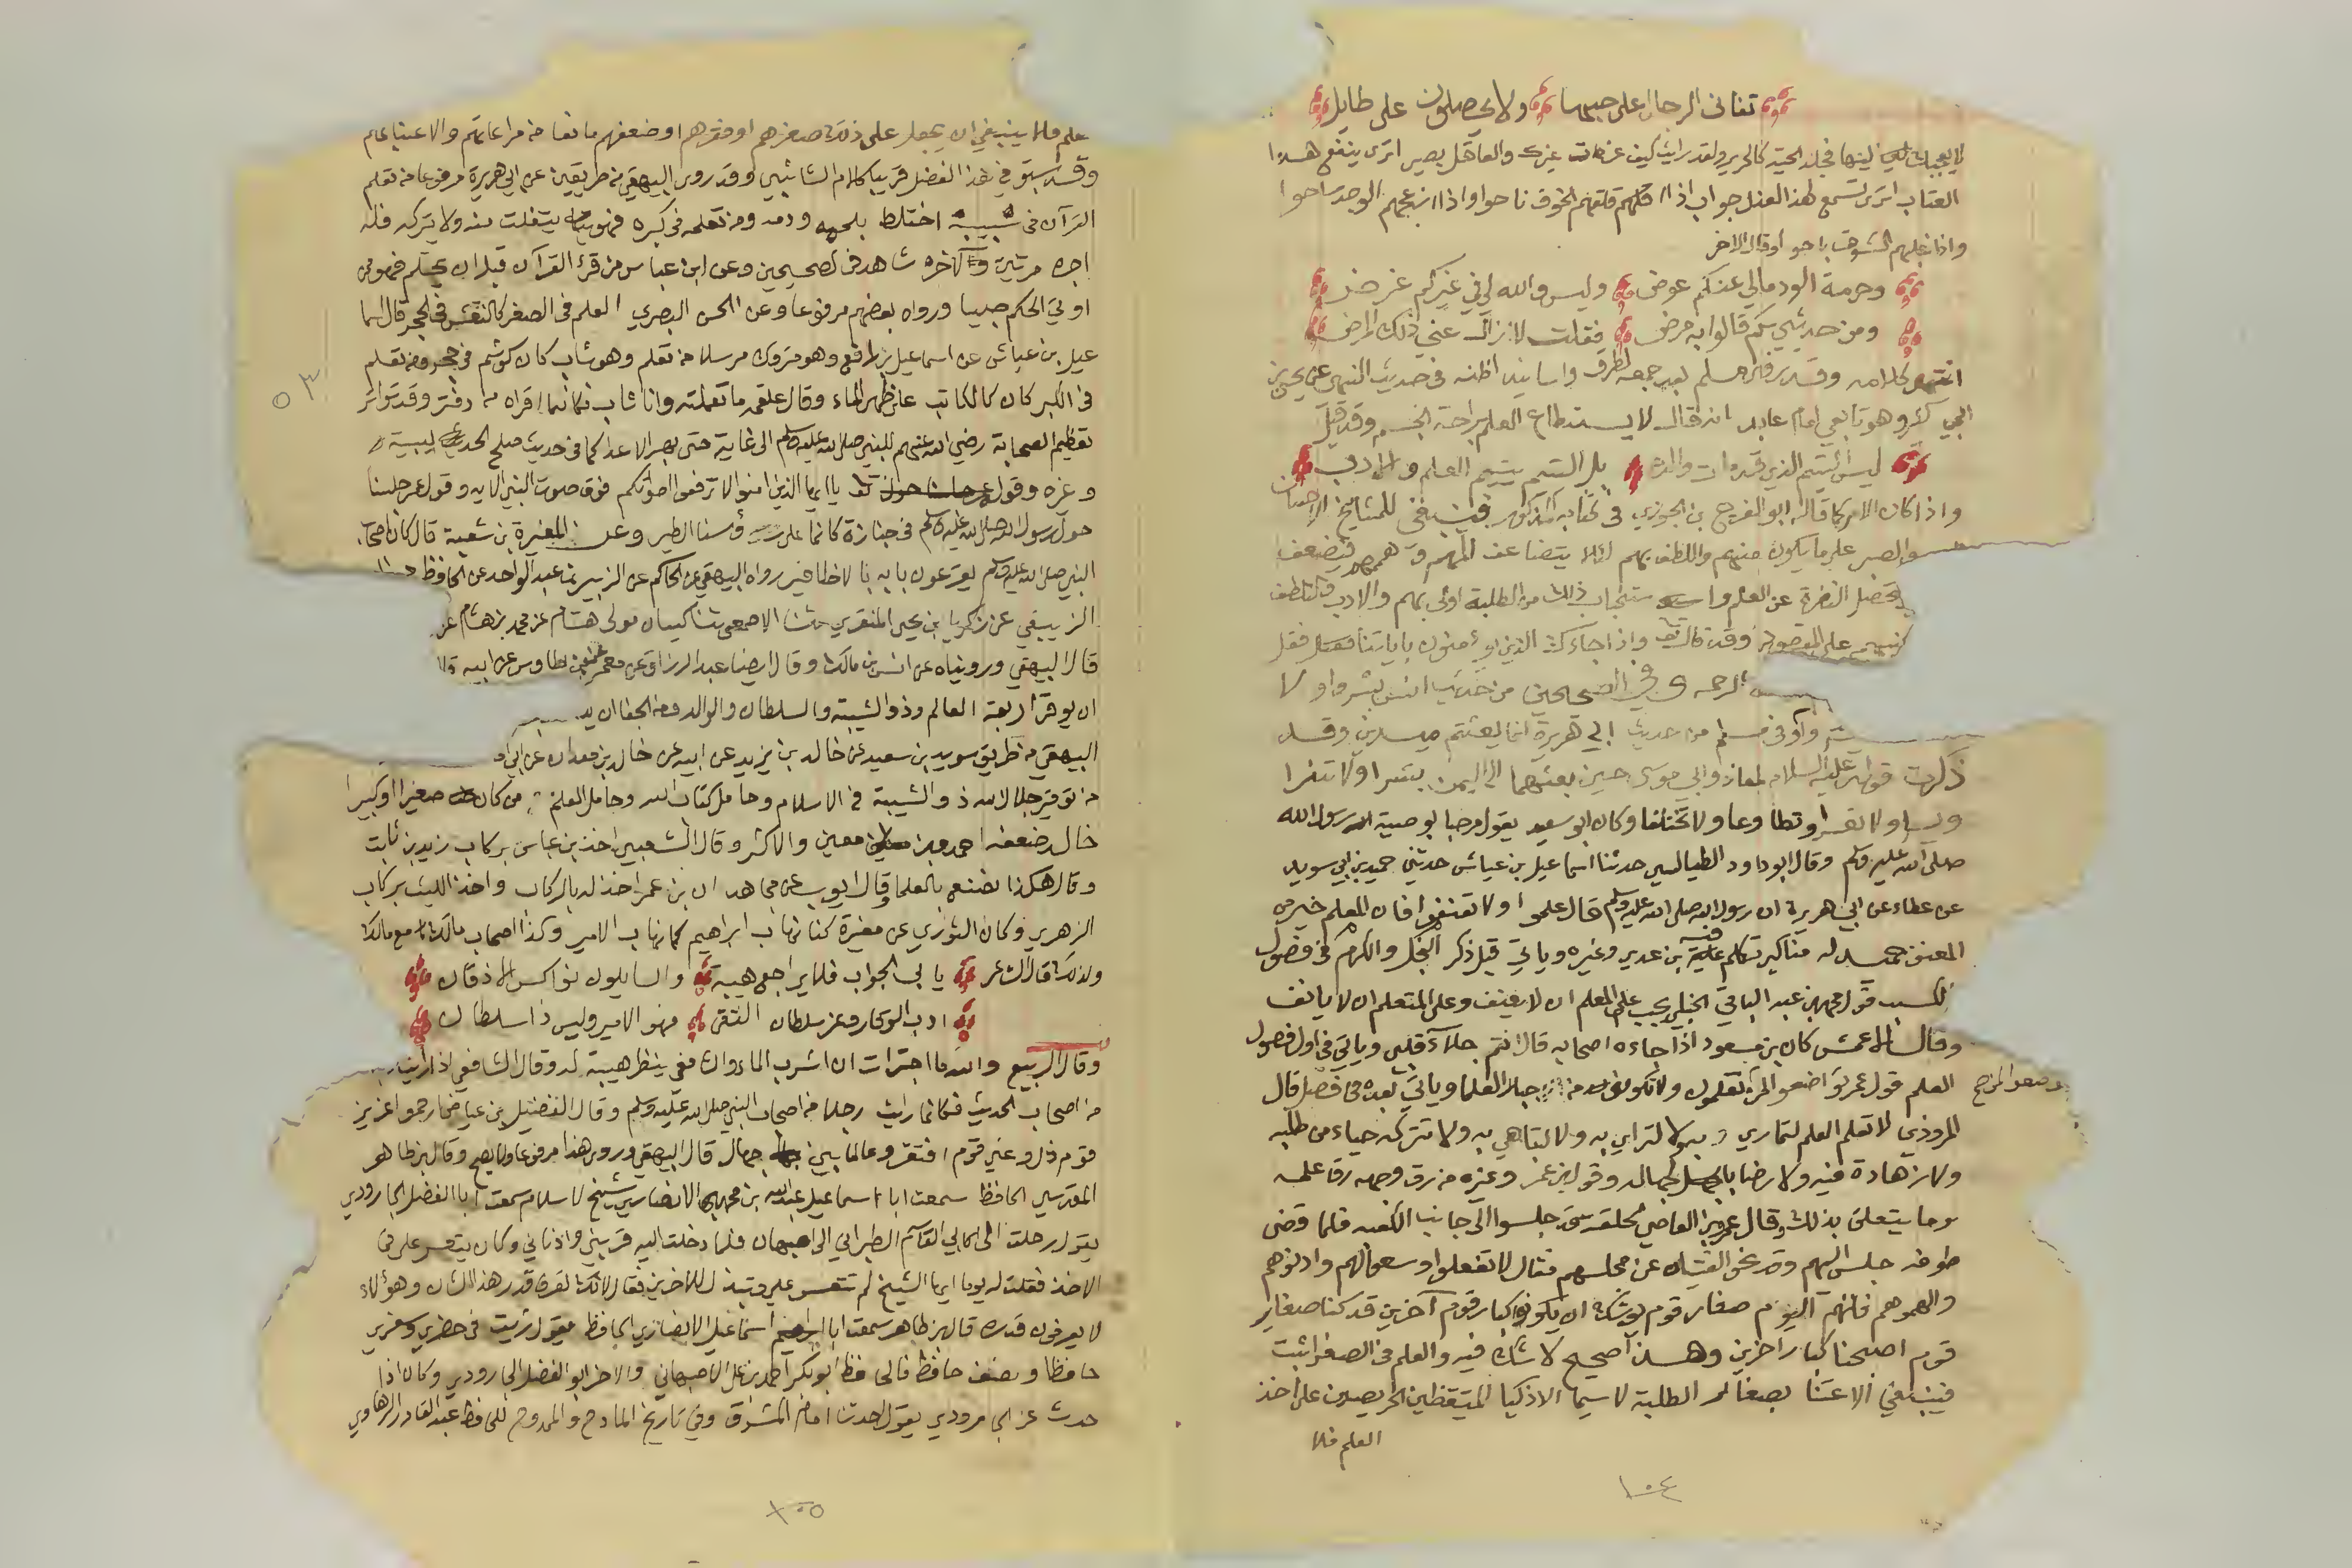 تفانى الرجال على حبها ولا يحصلون على طايل
لا يعجبك لينها فجلد الحية كالحرير ولقد رايت كيف غرت غيرك والعاقل بصير اترى ينفع هذا
العتاب اترى تسمع لهذا العذل جواب اذا اقلقهم الخوف ناحوا واذا ازعجهم الوجد ساحوا
واذا غلبهم الشوق باحوا وقال الاخر
وحرمة الود مالي عنكم عوض وليس والله لي في غيركم غرض
ومن حديثي بكم قالوا به مرض فقلت لا زال عني ذلك المرض
انتهى كلامه وقد ذكر مسلم بعد جمعه لطرق واسانيد اظنه في حديث النهي عن يحيى بن
ابي كثير وهو تابعي امام عابد انه قال لا يستطاع العلم براحة الجسم وقد قيل
ليس اليتيم الذي قد مات والده بل اليتيم يتيم العلم والادب
واذا كان الامر كما قاله ابو الفرج بن الجوزي في كتابه المذكور فينبغي للمشايخ الاحسان
والصبر على ما يكون منهم واللطف بهم لئلا يتضاعف المهم وهمهم فيضعف
الصبر وتحصل النفرة عن العلم واستجاب ذلك من الطلبة اولى بهم والادب والتلطف
على المقصود وقد قال تعالى واذا جاءك الذين يؤمنون باياتنا فقل
الرحمة وفي الصحيحين من حديث انس بشروا ولا
وفي مسلم من حديث ابي هريرة انما بعثتم ميسرين وقد
ذكرت قوله عليه السلام لمعاذ وابي موسى حين بعثهما الى اليمن بشرا ولا تنفرا
ويسرا ولا تعسرا وتطاوعا ولا تختلفا وكان ابو سعيد يقول مرحبا بوصية رسول الله
صلى الله عليه وسلم وقال ابو داود الطيالسي حدثنا اسماعيل بن عياش حدثني حميد بن ابي سويد
عن عطاء عن ابي هريرة ان رسول الله صلى الله عليه وسلم قال علموا ولا تعنفوا فان المعلم خير من
المعنف حميد له مناكير تكلم فيه بن عدي وغيره وياتي قبل ذكر البخل والكرم في فصول
الكسب قول محمد بن عبد الباقي الحنبلي يجب على المعلم ان لا يعنف وعلى المتعلم ان لا يانف
وقال الاعمش كان بن مسعود اذا جاءه اصحابه قال انتم جلاء قلبي وياتي في اول فصول
العلم قول عمر تواضعوا لمن تعلمون ولا تكونوا من جبابرة العلما وياتي بعده في فصل قال
المروذي لا تعلم العلم لتماري به ولا لترائي به ولا لتباهي به ولا تتركه حياء من طلبه
ولا زهادة فيه ولا رضا بالجهالة وقول بن عمر وغيره من رق وجهه رق علمه
ومما يتعلق بذلك وقال عمرو بن العاصي لحلقة قد جلسوا الى جانب الكعبة فلما قضى
طوافه جلس اليهم وقد نحوا الفتيان عن مجلسهم فقال لا تفعلوا اوسعوا لهم وادنوهم
والهموهم فانهم اليوم صغار قوم يوشك ان يكونوا كبار قوم آخرين قد كنا صغار
قوم اصبحنا كبار اخرين وهذا صحيح لا شك فيه والعلم في الصغر اثبت
فينبغي الاعتنا بصغار الطلبة لا سيما الاذكيا المتيقظين الحريصين على اخذ
العلم فلا
١٠٤
العلم فلا ينبغي ان يجعل على ذلك صغرهم او فقرهم او ضعفهم مانعا من مراعاتهم والاعتنا بهم
وقد سبق في هذا الفصل قريبا كلام الشافعي وقد روى البيهقي من طريقين عن ابي هريرة مرفوعا من تعلم
القرآن في شبيبته اختلط بلحمه ودمه ومن تعلمه في كبره فهو يتفلت منه ولا يتركه فله
اجره مرتين ولآخره شاهد في الصحيحين وعن ابن عباس من قرأ القرآن قبل ان يحتلم فهو ممن
اوتي الحكم صبيا ورواه بعضهم مرفوعا وعن الحسن البصري العلم في الصغر كالنقش في الحجر قال اسما
عيل بن عياش عن اسماعيل بن رافع وهو متروك مرسلا من تعلم وهو شاب كان كوشم في حجر ومن تعلم
في الكبر كان كالكاتب على ظهر الماء وقال علقمة ما تعلمته وانا شاب فكانما اقراه من دفتر وقد تواتر
تعظيم الصحابة رضي الله عنهم للنبي صلى الله عليه وسلم الى غاية حتى بهر الاعدا كما في حديث صلح الحديبية
وغيره وقوله تعالى يا ايها الذين امنوا لا ترفعوا اصواتكم فوق صوت النبي الاية وقول عمر جلسنا
حول رسول الله صلى الله عليه وسلم في جنازة كانما على رؤسنا الطير وعن المغيرة بن شعبة قال كان اصحاب
النبي صلى الله عليه وسلم يقرعون بابه بالاظافير رواه البيهقي عن الحاكم عن الزبير بن عبد الواحد عن الحافظ
الزيبقي عن زكريا بن يحيى المنقري حدثنا الاصمعي ثنا كيسان مولى هشام عن محمد بن هشام عن
قال البيهقي وروينا عن انس بن مالك وقال ايضا عبد الرزاق عن معمر عن بن طاوس عن ابيه قال
ان يوقر اربعة العالم وذو الشيبة والسلطان والوالد ومن الجفا ان يد
البيهقي من طريق سويد بن سعيد عن خالد بن يزيد عن ابيه عن خالد بن معدان عن ابي
من توقير جلال الله ذو الشيبة في الاسلام وحامل كتاب الله وحامل العلم من كان صغيرا او كبيرا
خالد ضعفه احمد وبن معين والاكثر وقال الشعبي اخذ بن عباس بركاب زيد بن ثابت
وقال هكذا نصنع بالعلما وقال ايوب عن مجاهد ان بن عمر اخذ له بالركاب واخذ الليث بركاب
الزهري وكان الثوري عن مغيرة كنا نهاب ابراهيم كما نهاب الامير وكذا اصحاب مالك مع مالك
ولذلك قال الشاعر يابى الجواب فلا يراجع هيبة والسايلون نواكس الاذقان
ادب الوقار وعز سلطان التقى فهو الامير وليس ذا سلطان
وقال الربيع والله ما اجترات ان اشرب الماء والشافعي ينظر هيبة له وقال الشافعي اذا رايت
من اصحاب الحديث فكانما رايت رجلا من اصحاب النبي صلى الله عليه وسلم وقال الفضيل بن عياض ارحموا عزيز
قوم ذل وغني قوم افتقر وعالما بين جهال قال البيهقي وروي هذا مرفوعا ولا يصح وقال بن طاهر
المقدسي الحافظ سمعت ابا اسماعيل عبد الله بن محمد الانصاري شيخ الاسلام سمعت ابا الفضل الجارودي
يقول رحلت الى ابي القاسم الطبراني الى اصبهان فلما دخلت اليه قربني وادناني وكان يتعسر علي في
الاخذ فقلت له يوما ايها الشيخ لم تتعسر علي وتبذل للاخرين فقال لانك تعرف قدر هذا الشان وهؤلاء
لا يعرفون قدره قال بن طاهر سمعت ابا اسماعيل الانصاري الحافظ يقول رايت في حضري وسفري
حافظا ونصف حافظ فالحافظ ابو بكر احمد بن علي الاصبهاني والاخر ابو الفضل الجارودي وكان اذا
حدث عن الجارودي يقول حدثنا امام المشرق وفي تاريخ المادح والممدوح للحافظ عبد القادر الرهاوي
١٠٥
٥٣